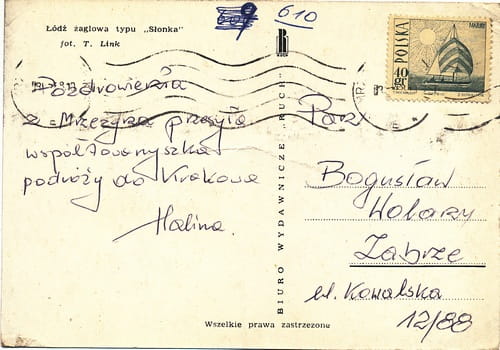 Łódź żaglowa typu „Słonka"
fot. T. Link
610
Pozdrowienia
z Mrzeżyna przesyła
współtowarzyszka
podróży do Krakowa
Halina.
BIURO WYDAWNICZE „RUCH"
POLSKA
40
gr
Pan
Bogusław
Wolany
Zabrze
ul. Kowalska
12/88
Wszelkie prawa zastrzeżone